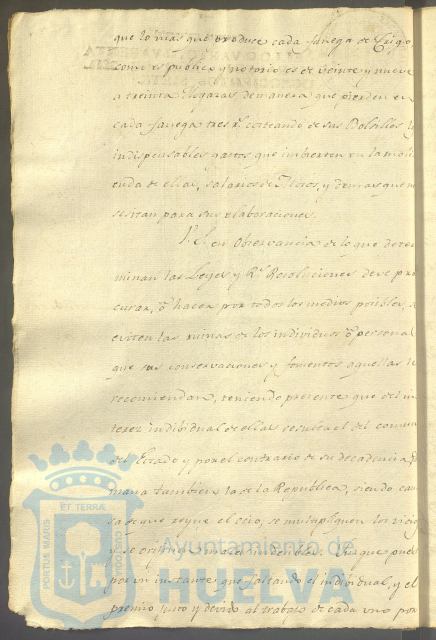 que lo mas que produce cada fanega de Trigo,
como es publico y notorio es de veinte y nueve
a treinta hogazas de manera que pierden en
cada fanega tres r.^s costeando de sus Bolsillos
indispensables gastos que imbierten en la moli
enda de ellas, salarios de y demas que ne
sesitan para sus elaboraciones.
V. E. en Observancia de lo que deter
minan las Leyes y R.^s Resoluciones deve pro
curar, hacer por todos los medios posibles, se
eviten las ruinas de los individuos personal
que sus conservaciones y fomentos aquellas le
recomiendan, teniendo presente que del in
terez individual de ellas resulta el del comun
del Estado y por el contrario de su decadencia
mana tambien la de la Republica, siendo cau
sa de que reyne el ocio, se multipliquen los vicios
y se originen
por un instante que faltando el individual, y el
premio justo y devido al trabajo de cada uno por
ET TERRAE
PORTUS MARIS
CUSTODIA
Ayuntamiento de
HUELVA